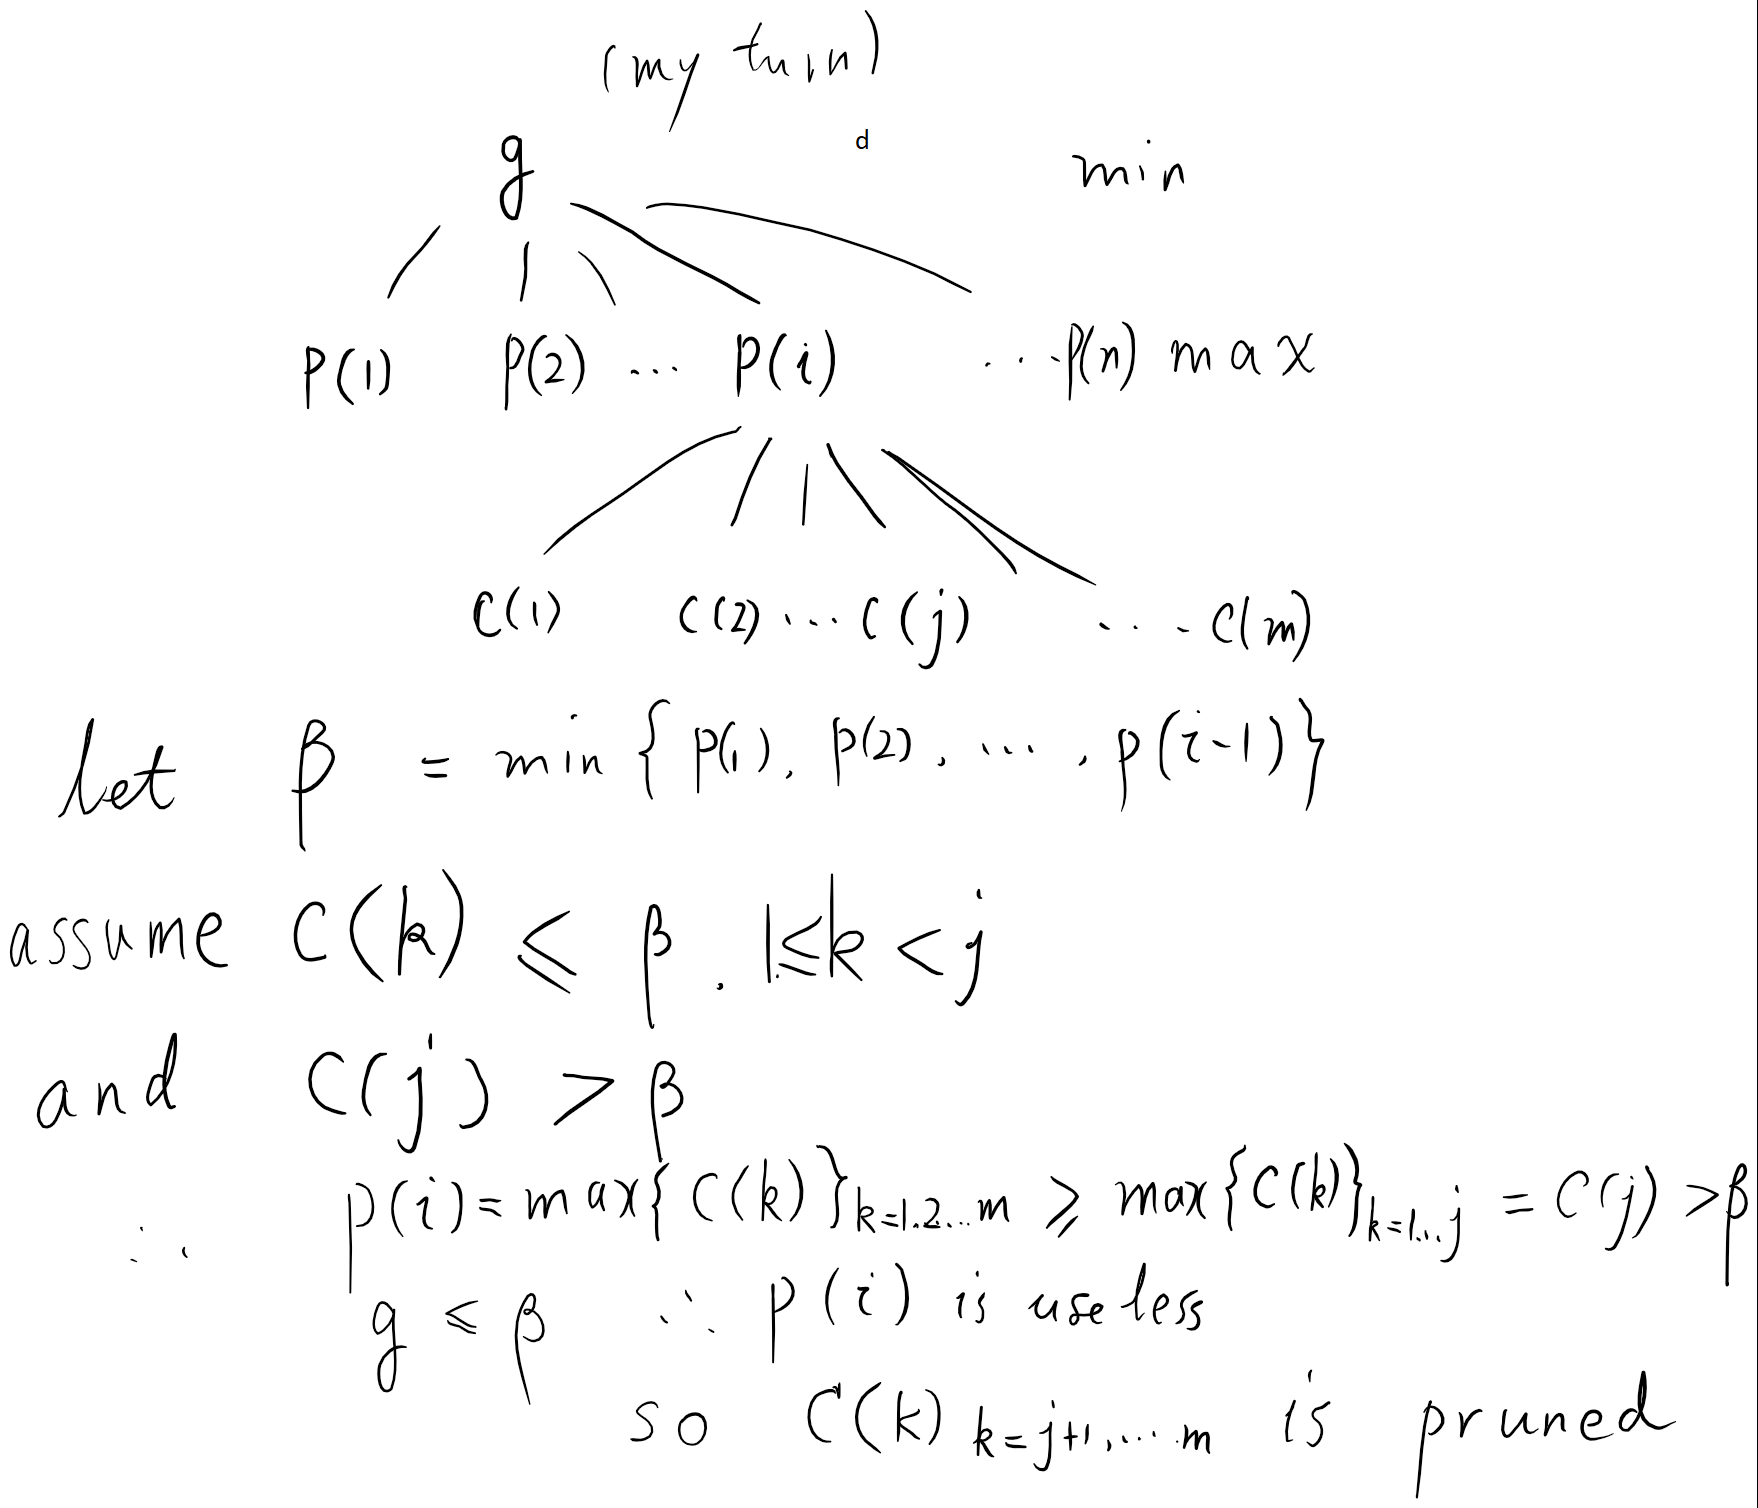 (my turn)
d
g min
P(1) P(2) ... P(i) ... P(n) max
C(1) C(2) ... C(j) ... C(m)
let β = min { P(1), P(2), ..., P(i-1) }
assume C(k) ≤ β. 1≤k<j
and C(j) > β
∴ P(i) = max{ C(k) }k=1.2...m ≥ max{C(k)}k=1...j = C(j) > β
g ≤ β ∴ P(i) is useless
so C(k) k=j+1,...m is pruned